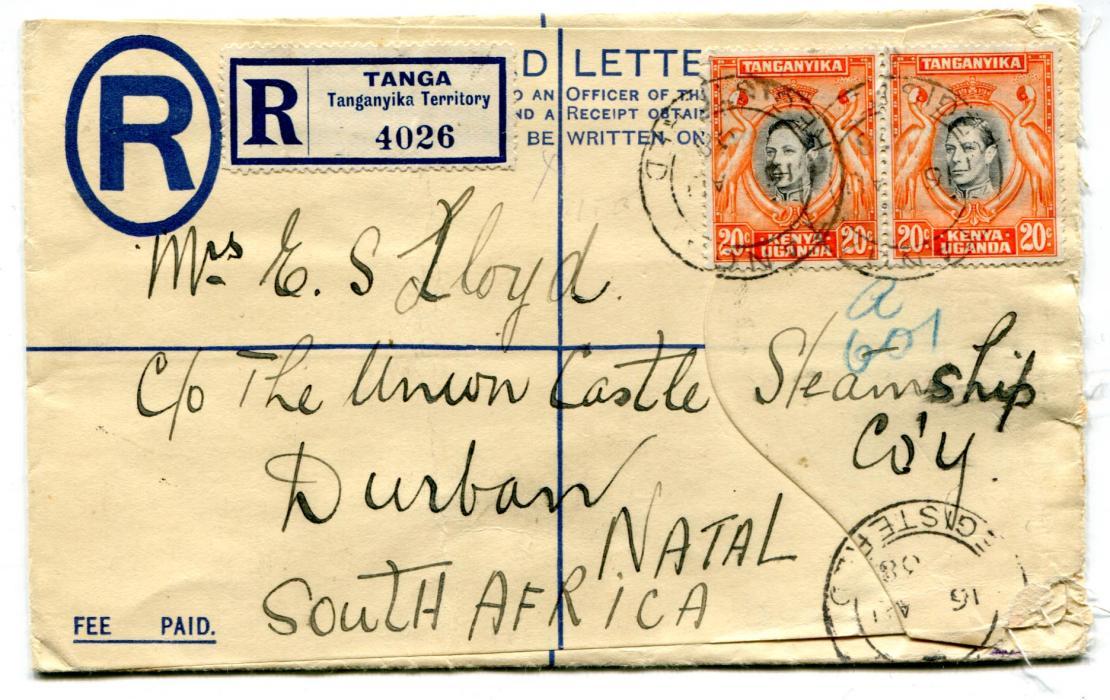 R
R
TANGA
Tanganyika Territory
4026
D LETTE
O AN OFFICER OF TH
ND A RECEIPT OBTAI
BE WRITTEN ON
TANGANYIKA
20c KENYA UGANDA 20c
TANGANYIKA
20c KENYA UGANDA 20c
a
601
Mrs E. S Lloyd.
c/o The Union Castle Steamship
Co'y.
Durban
NATAL
SOUTH AFRICA
FEE PAID.
GISTE
16
38